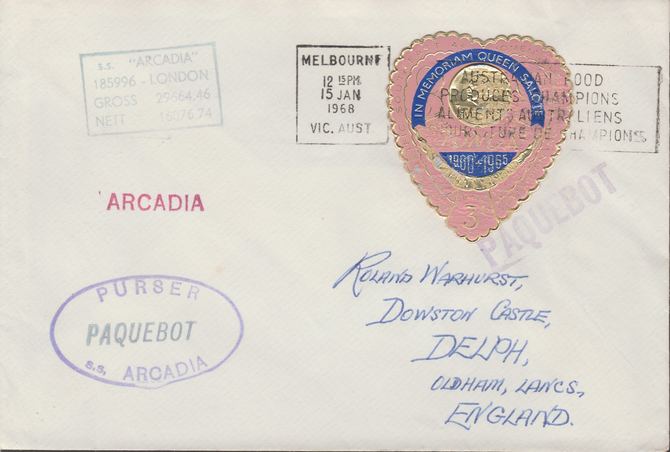 s.s. "ARCADIA"
185996 - LONDON
GROSS 29664.46
NETT 16076.74
MELBOURNE
12 15PM
15 JAN
1968
VIC. AUST
IN MEMORIAM QUEEN SALOTE
1900-1965
3
AUSTRALIAN FOOD
PRODUCES CHAMPIONS
ALIMENTS AUSTRALIENS
NOURRITURE DE CHAMPIONS
PAQUEBOT
ARCADIA
PURSER
PAQUEBOT
S.S. ARCADIA
ROLAND WARHURST,
DOWSTON CASTLE,
DELPH,
OLDHAM, LANCS,
ENGLAND.